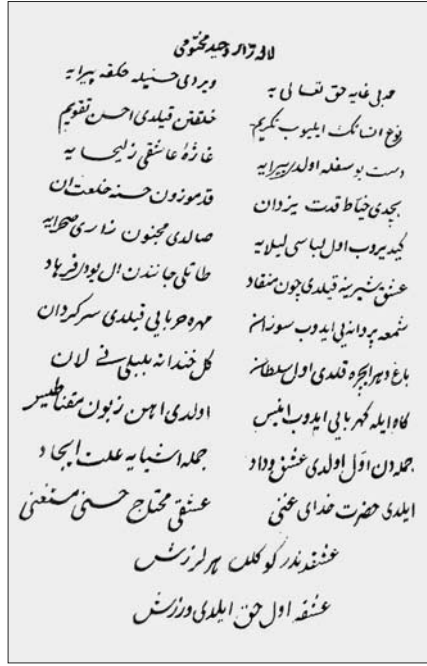 لاله زار وحید مختومی
حمد بی غایه حق تعالی یه ویردی حسنیله حلقه پیرایه
نوع انسانک ایلیوب تکریم خلقتن قیلدی احسن تقویم
دست اولدر پیرایه غازهٔ عاشقی زلیخا یه
بچدی خیاط قدرت یزدان قد موزون حسنه خلعت ان
کیدیروب اول لباسی لیلایه صالدی مجنون زاری صحرایه
عشق شیرینه قیلدی چون منقاد طاتلی جانندن ال یودر فرهاد
شمعه پروانه یی ایدوب سوزان مهره حربایی قیلدی سرکردان
باغ دهر ایچره قلدی اول سلطان کل خندانه بلبلی نالان
کاه ایله کهربایی ایدوب انیس اولدی اهن زبون مقناطیس
جمله دن اول اولدی عشق و داد جمله اشیایه علت ایجاد
ایلدی حضرت خدای غنی عشقی محتاج حسنی مستغنی
عشقدندر کوکلده هر لرزش
عشقه اول حق ایلدی ورزش